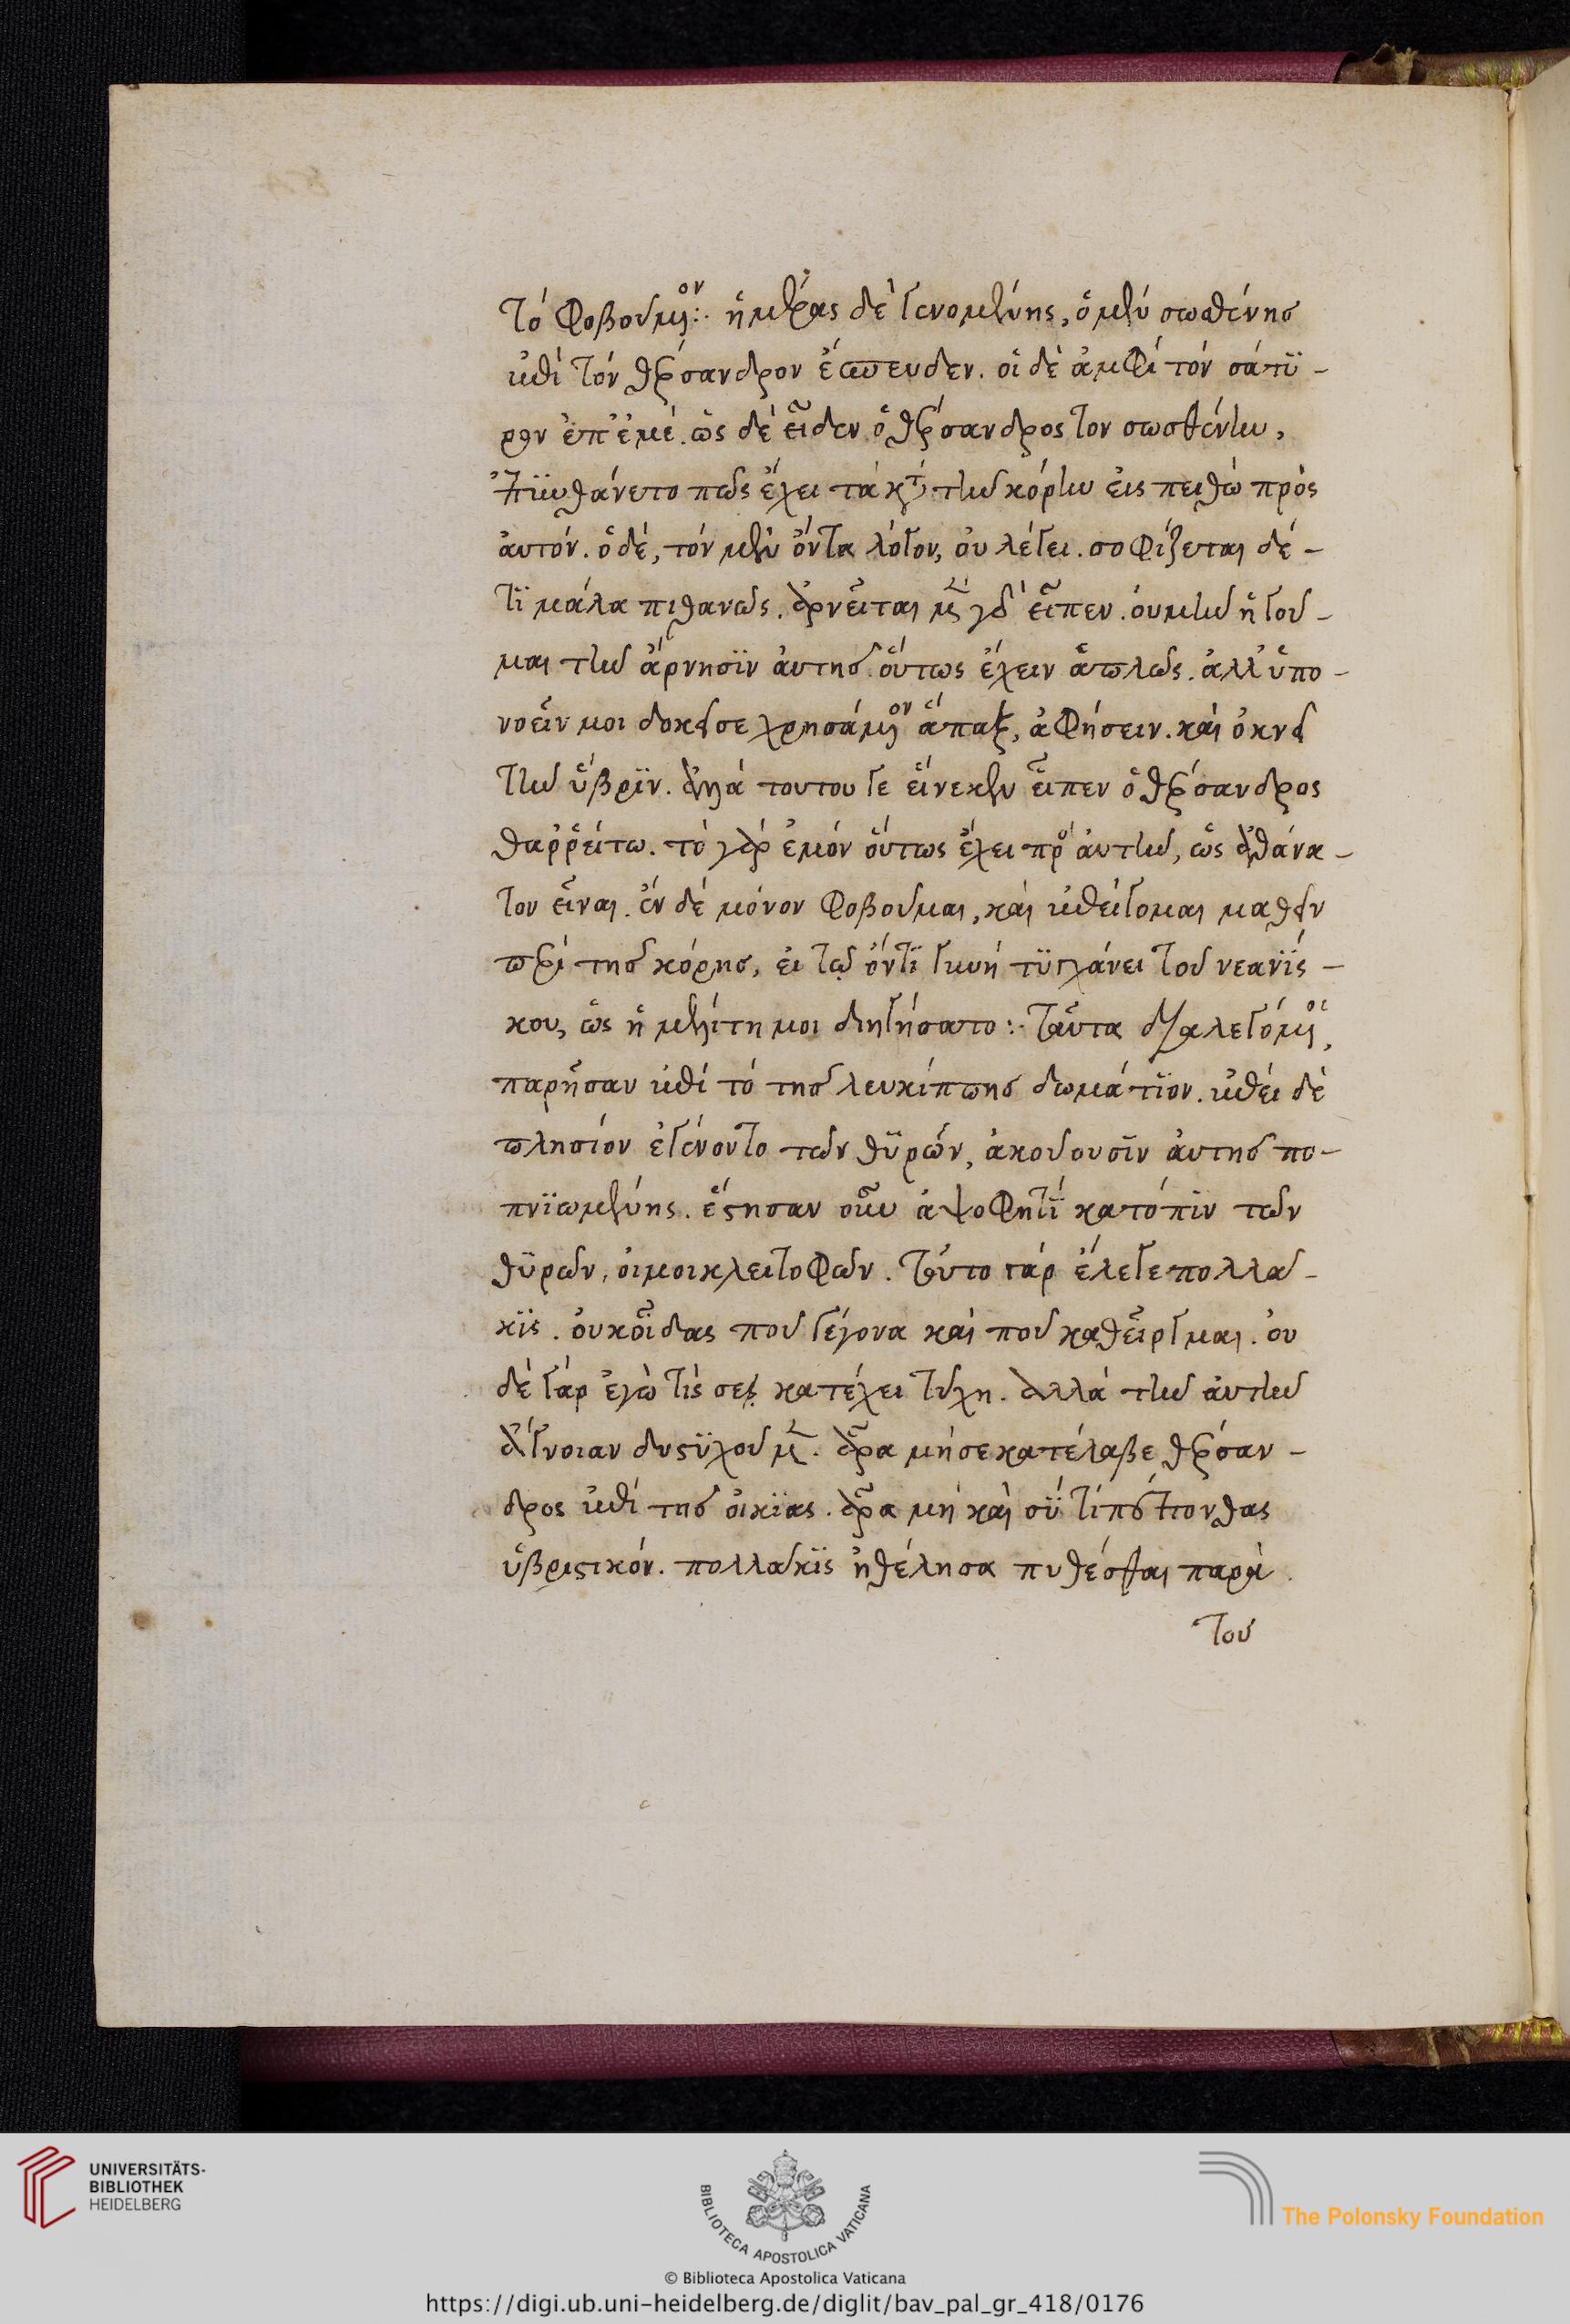 τὸ φοβούμενον :· ἡμέρας δὲ γενομένης, ὁ μὲν σωσθένης
ἐπὶ τὸν θέρσανδρον ἔσπευδεν. οἱ δὲ ἀμφὶ τὸν σάτϋ-
ρον ἐπ' ἐμέ. ὡς δὲ εἶδεν ὁ θέρσανδρος τον σωσθένην,
ἐπϋνθάνετο πῶς ἔχει τὰ κατὰ τὴν κόρην εἰς πειθὼ πρὸς
ἀυτόν. ὁ δὲ, τὸν μὲν ὄντα λόγον, ὀυ λέγει. σοφίζεται δέ-
τϊ μάλα πιθανῶς. ἀρνεῖται μὲν γὰρ εἶπεν. ὀυ μὴν ἡγοῦ-
μαι τὴν ἄρνησϊν ἀυτῆς ὅυτως ἔχειν ἁπλῶς. ἀλλ' ὑπο-
νοεῖν μοι δοκεῖ σε χρησάμενον ἅπαξ, ἀφήσειν. καὶ ὀκνεῖ
τὴν ὕβρϊν. ἀλλὰ τουτου γε εἵνεκεν εἶπεν ὁ θέρσανδρος
θαρῤείτω. τὸ γὰρ ἐμὸν ὅυτως ἔχει πρὸς ἀυτὴν, ὡς ἀθάνα-
τον εἶναι. ἓν δὲ μόνον φοβοῦμαι, καὶ ἐπείγομαι μαθεῖν
περὶ τῆς κόρης, εἰ τῷ ὄντϊ γυνὴ τϋγχάνει τοῦ νεανϊσ-
κου, ὡς ἡ μελίτη μοι διηγήσατο :· ταῦτα διαλεγόμενοι,
παρῆσαν ἐπὶ τὸ τῆς λευκίππης δωμάτϊον. ἐπεὶ δὲ
πλησίον ἐγένοντο τῶν θϋρῶν, ἀκούουσϊν ἀυτῆς πο-
πνϊωμένης. ἔστησαν οὖν ἀψοφητϊ κατόπϊν τῶν
θϋρῶν, οἴμοι κλειτοφῶν. τοῦτο γὰρ ἔλεγε πολλά-
κϊς. ὀυκ οἶδας ποῦ γέγονα καὶ ποῦ καθεῖργμαι. ὀυ
δὲ γὰρ ἐγὼ τίς σε κατέχει τύχη. ἀλλὰ τὴν ἀυτὴν
ἄγνοιαν δυστϋχοῦμεν. ἆρα μή σε κατέλαβε θέρσαν-
δρος ἐπὶ τῆς οἰκϊας. ἆρα μὴ καὶ σϋ τί πέπονθας
ὑβριστικόν. πολλάκϊς ἠθέλησα πυθέσθαι παρὰ
τοῦ
UNIVERSITÄTS-
BIBLIOTHEK
HEIDELBERG
BIBLIOTECA APOSTOLICA VATICANA
The Polonsky Foundation
© Biblioteca Apostolica Vaticana
https://digi.ub.uni-heidelberg.de/diglit/bav_pal_gr_418/0176